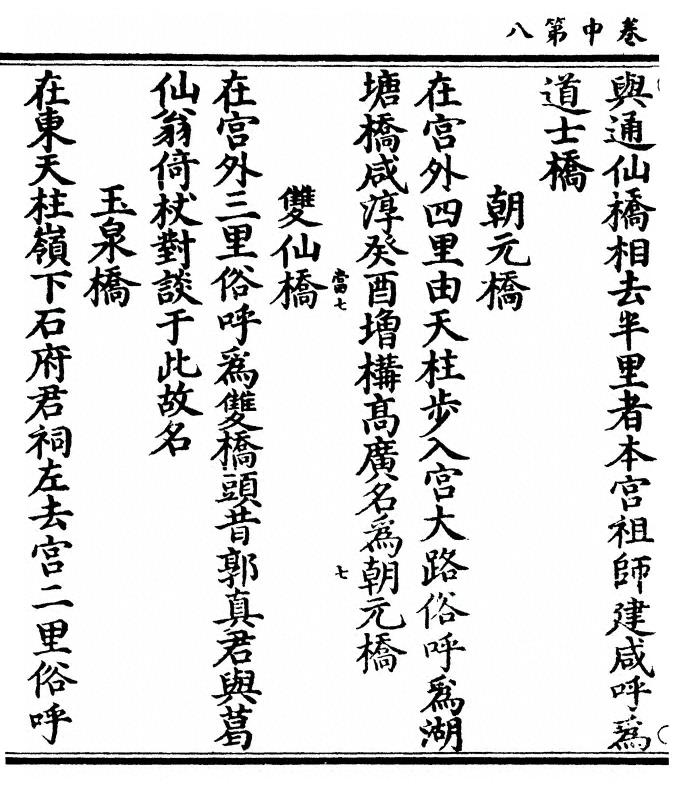 卷中第八
與通仙橋相去半里者本宮祖師建咸呼爲
道士橋
朝元橋
在宮外四里由天柱步入宮大路俗呼爲湖
塘橋咸淳癸酉增構高廣名爲朝元橋
當七
七
雙仙橋
在宮外三里俗呼爲雙橋頭昔郭真君與葛
仙翁倚杖對談于此故名
玉泉橋
在東天柱嶺下石府君祠左去宮二里俗呼